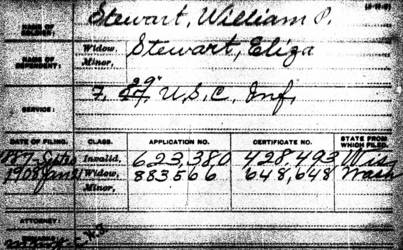 (3-15-6)
NAME OF SOLDIER: Stewart, William P.
NAME OF DEPENDENT: Widow, Stewart, Eliza
Minor,
SERVICE: F, 29" U.S.C. Inf,
DATE OF FILING. CLASS. APPLICATION NO. CERTIFICATE NO. STATE FROM WHICH FILED.
1887 Invalid, 623,380 428,493 Wis
1908 Jan Widow, 883566 648,648 Wash
Minor,
ATTORNEY: